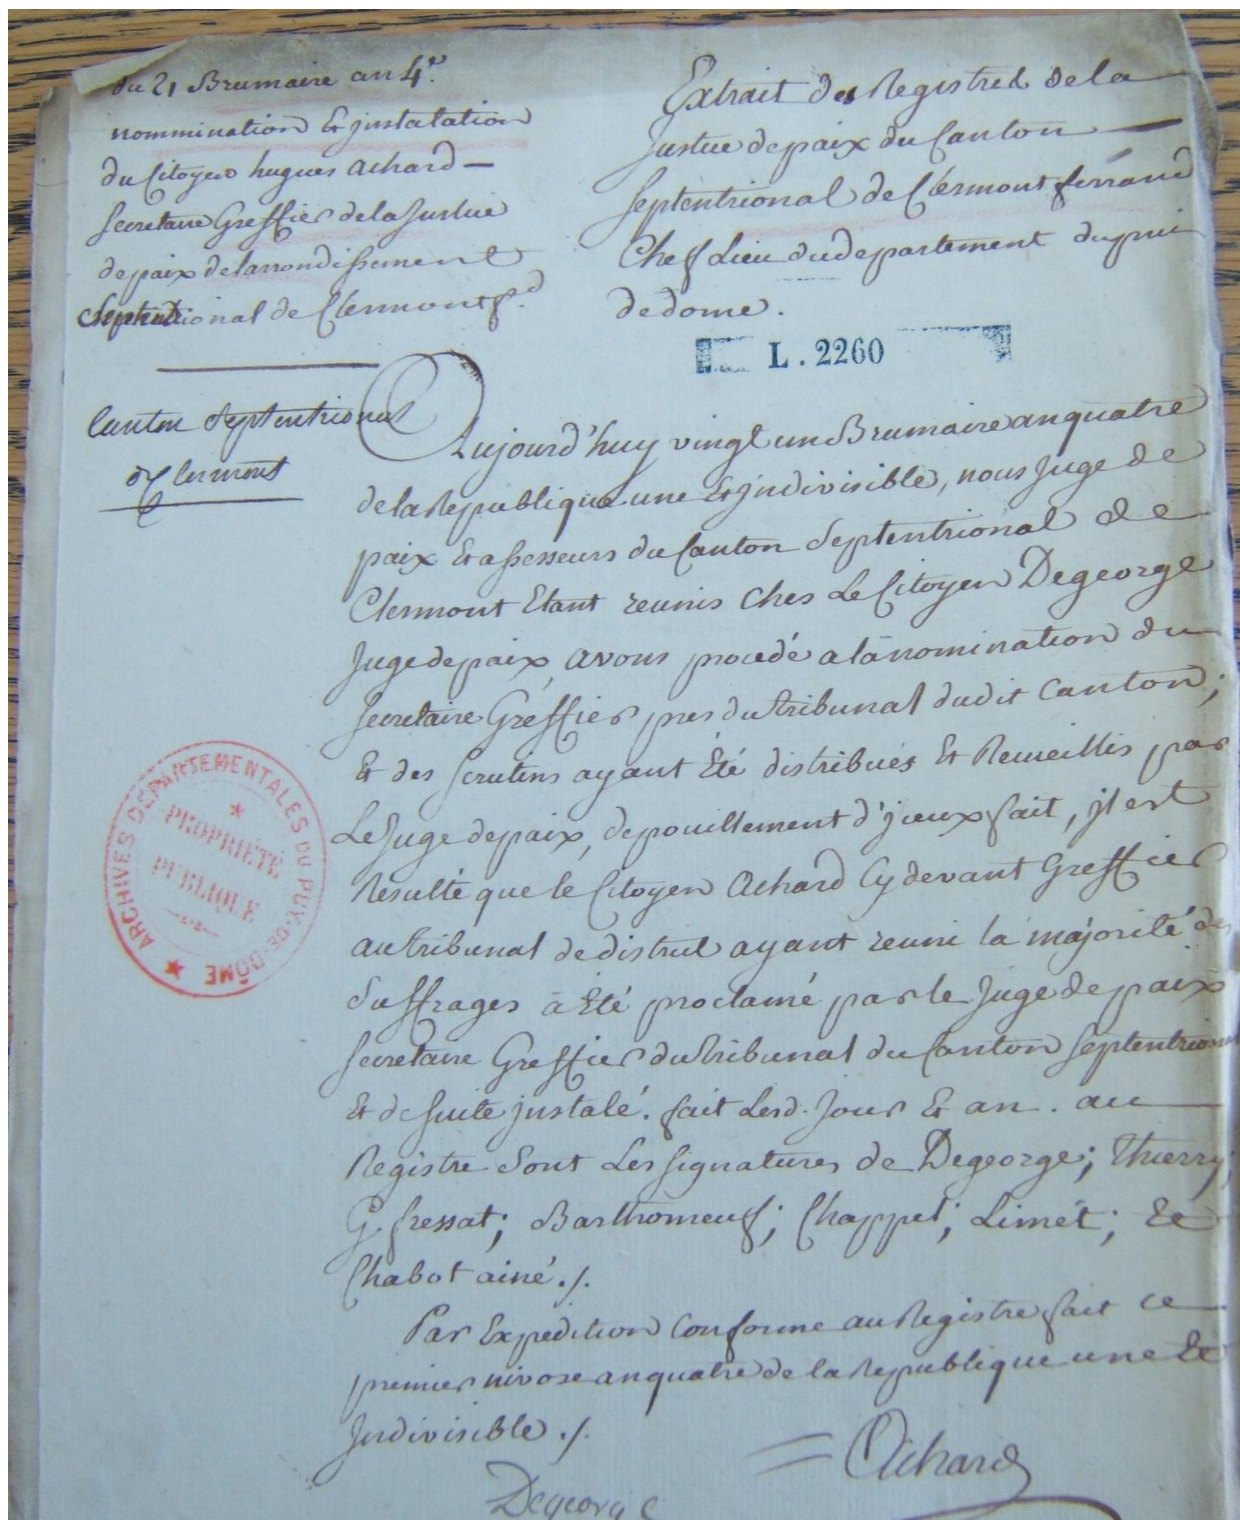 du 21 Brumaire an 4e.
nommination Et jnstalation
du Citoyen hugues Achard —
secretaire Greffier de la Justice
de paix de larrondissement
septentrional de Clermont fd.
Canton Septentrional
de Clermont
Extrait des Registres de la
Justice de paix du Canton
septentrional de Clermont ferrand
Chef Lieu du departement du pui
de dome.
L. 2260
Aujourd'huy vingt un Brumaire an quatre
de la Republique une Et jndivisible, nous Juge de
paix Et assesseurs du Canton Septentrional de
Clermont Etant reunis Ches Le Citoyen Degeorge
Juge de paix, avons procedé a la nomination du
secretaire Greffier pres du tribunal dudit Canton;
Et des scrutins ayant Eté distribués Et Recueillis par
Le Juge de paix, depouillement d'jceux fait, jl est
Resulté que le Citoyen Achard Cy devant Greffier
au tribunal de district ayant reuni la majorité des
Suffrages à Eté proclamé par le Juge de paix
secretaire Greffier du tribunal du Canton septentrional
Et de suite jnstalé. fait Lesd. Jour Et an. au
Registre Sont Les signatures de Degeorge; Thierry;
G. fressat; Barthomeuf; Chappel; Limet; Et
Chabot ainé ./.
Par Expedition Conforme au Registre fait ce
premier nivose an quatre de la Republique une Et
Jndivisible ./.
Achard
Degeorge
ARCHIVES DÉPARTEMENTALES DU PUY-DE-DÔME
PROPRIÉTÉ
PUBLIQUE